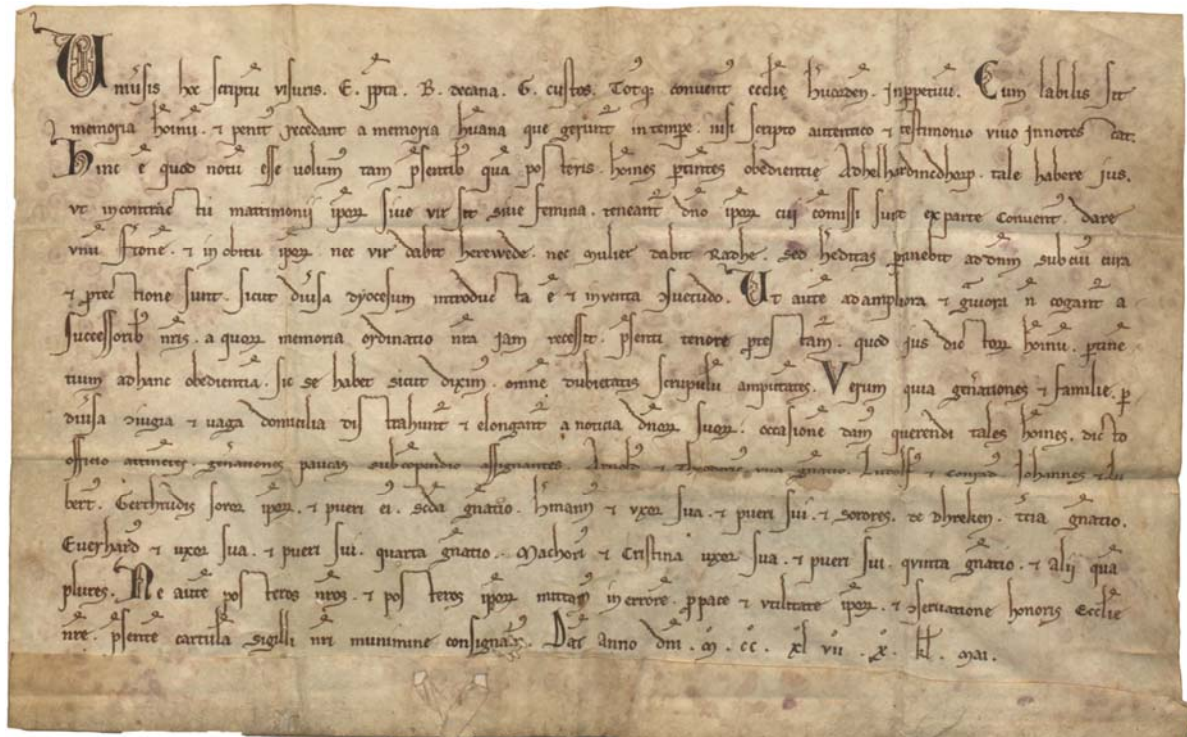 Uniu'sis hoc scriptu visuris . E . ppta . B . decana . G . custos . Totq; conuent' ecclie h'uorden . inppetuu . Cum labilis sit
memoria hoinu . & penit' recedant a memoria hu'ana que gerunt' in tempe . nisi scripto autentico & testimonio viuo innotescat .
hinc e quod notu esse uolum' tam p'sentib' qua posteris . hoines ptinentes obedientie Adhelhardincdhorp . tale habere jus .
vt in contractu matrimonij ipor' siue vir sit siue femina . teneant' dno ipor' cui comissi sunt ex parte Conuent' . dare
vnu frone . & in obitu ipor' nec vir dabit herewede . nec mulier dabit Radhe . sed h'editas p'manebit ad dnm sub cui' cura
& protectione sunt . sicut diu'sa dyocesum introducta e & inuenta 9suetudo . Ut aute ad ampliora & g'uiora n cogant' a
successorib' nris . a quor' memoria ordinatio nra jam recessit . p'senti tenore protestam' . quod jus dictor' hoinu . ptine
tium ad hanc obedientia . sic se habet sicut dixim' . omne dubietatis scrupulu amputates . Verum quia gen'ationes & familie . p
diu'sa 9iugia & uaga domicilia distrahunt' & elongant' a noticia dnor' suor' . occasione dam' querendi tales hoines . dicto
officio attinetes . gn'ationes paucas sub copendio assignantes . Arnold' & Theoderic' vna gn'atio . Ludolf' & Conrad' Johannes & Lu
bert' . Gerthrudis soror ipor' . & pueri ei' . scda gn'atio . h'mann' & vxor sua . & pueri sui . & sorores . de Dhreken . t'cia gn'atio .
Euerhard' & uxor sua . & pueri sui . quarta gn'atio . Machori' & Cristina uxor sua . & pueri sui . quinta gn'atio . & alij qua
plures . Ne aute posteros nros . & posteros ipor' mittam' in errore . p pace & utilitate ipor' . & 9seruatione honoris Ecclie
nre . p'sente cartula sigilli nri munimine consignam' . Dat' anno dni . m . cc . xl vii . x . kl . mai .